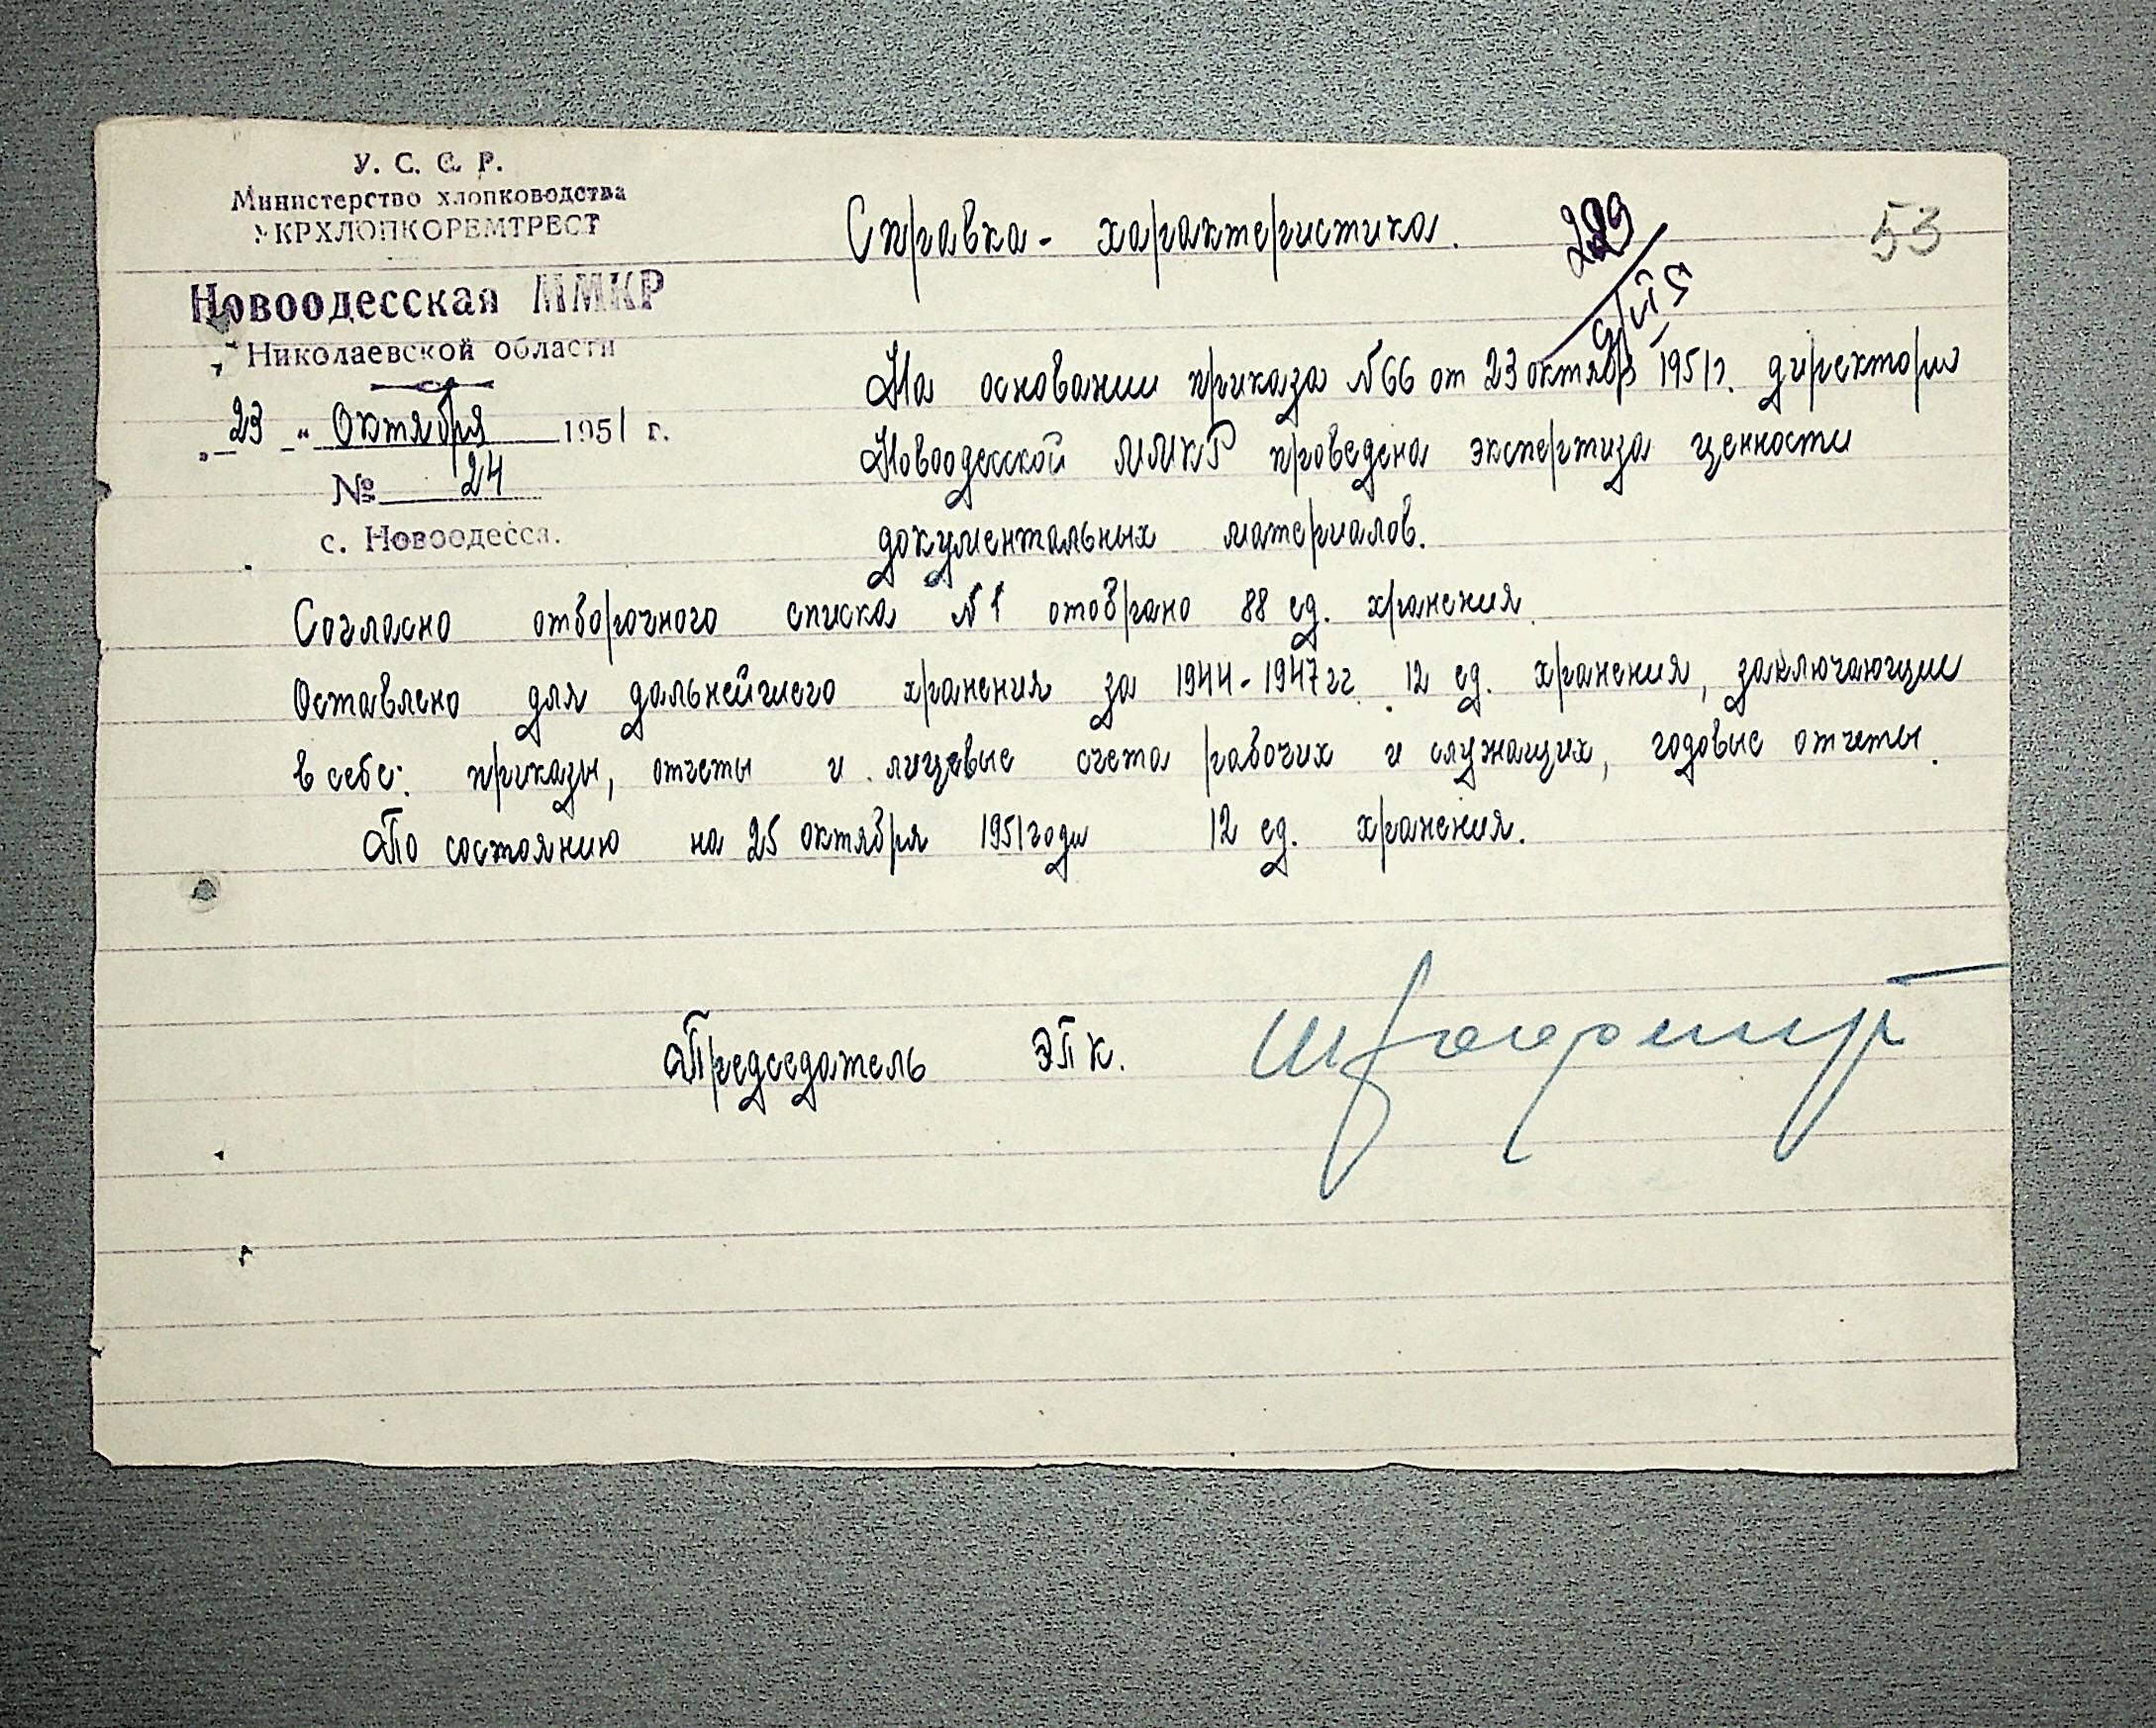 У. С. С. Р.
Министерство хлопководства
УКРХЛОПКОРЕМТРЕСТ
Новоодесская ММКР
Николаевской области
„23" Октября 1951 г.
№ 24
с. Новоодесса.
Справка - характеристика.
229
53
На основании приказа №66 от 23 октября 1951г. директора
Новоодесской ММКР проведена экспертиза ценности
документальных материалов.
Согласно отборочного списка №1 отобрано 88 ед. хранения.
Оставлено для дальнейшего хранения за 1944-1947гг. 12 ед. хранения, заключающие
в себе: приказы, отчеты и лицевые счета рабочих и служащих, годовые отчеты.
По состоянию на 25 октября 1951 года 12 ед. хранения.
Председатель ЭПК.